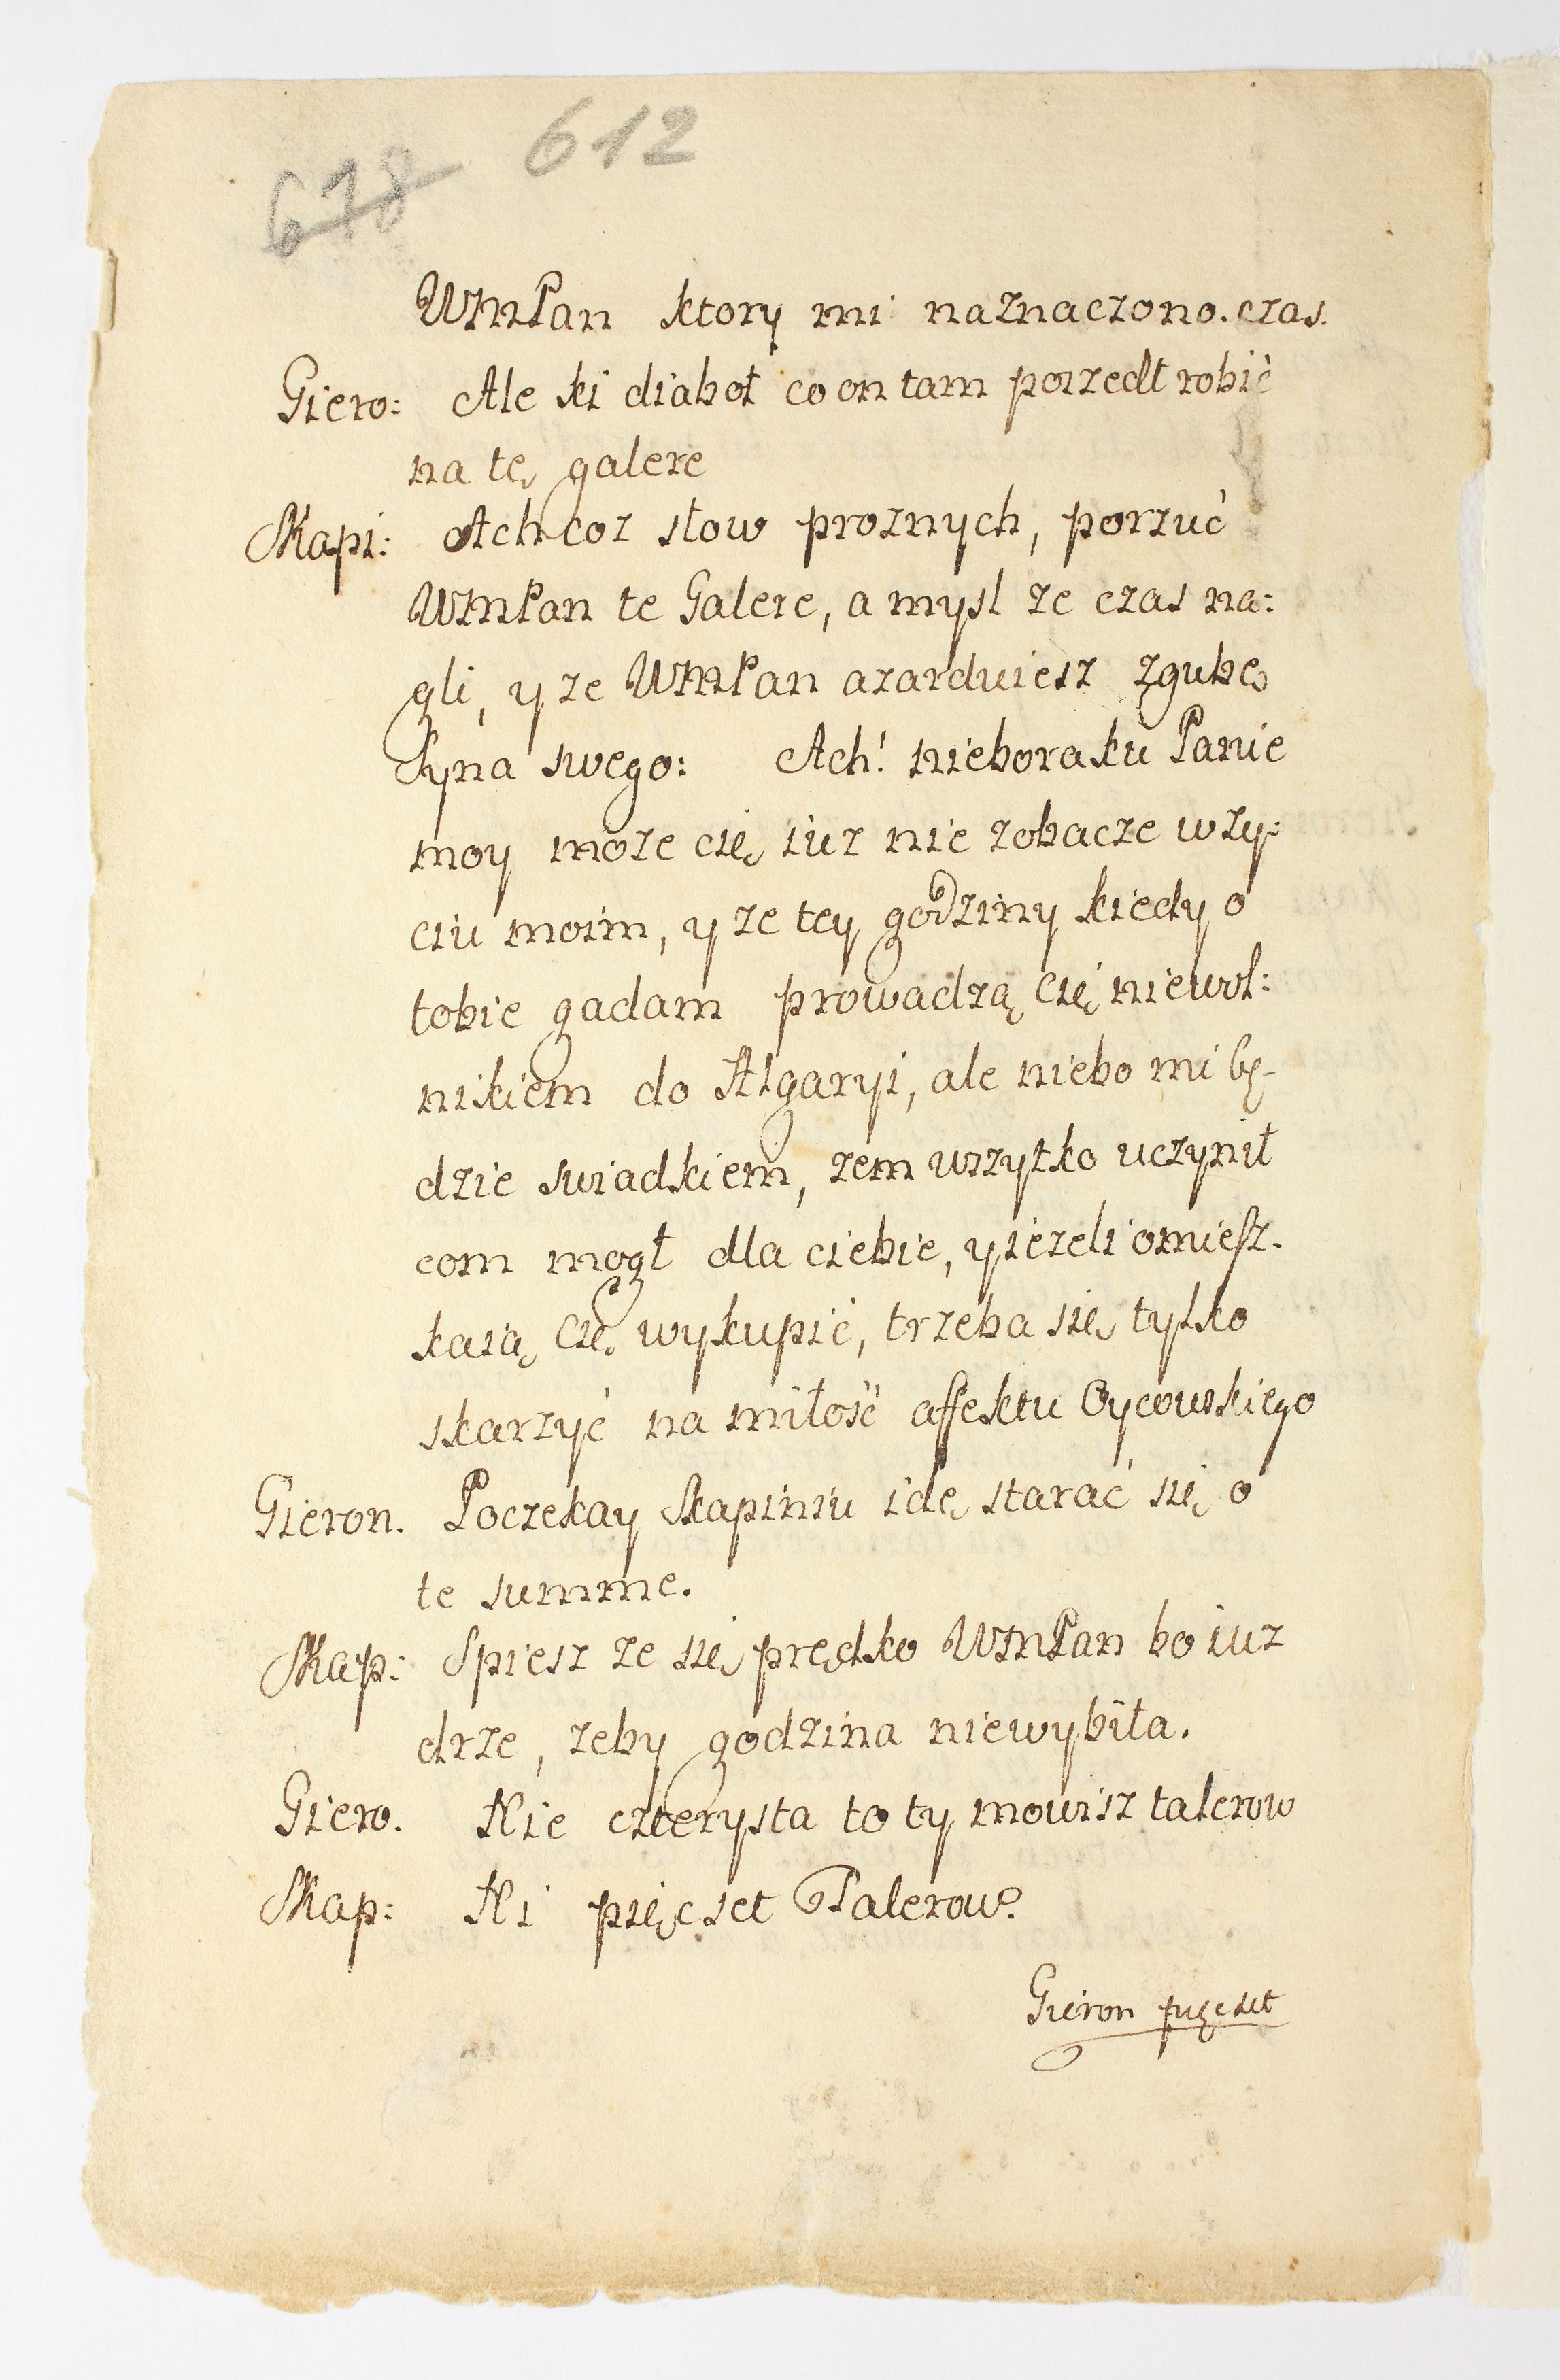 678 612
WMPan ktory mi naznaczono. czas.
Giero: Ale ki diaboł co on tam poszedł robić
na tę galere
Skapi: Ach coz słow proznych, porzuć
WMPan te Galere, a mysl ze czas na:
gli, y ze WMPan azarduiesz zgubę
Syna swego: Ach! nieboraku Panie
moy moze cię iuz nie zobacze w zy:
ciu moim, y ze tey godziny kiedy o
tobie gadam prowadzą Cię niewol:
nikiem do Algaryi, ale niebo mi bę-
dzie swiadkiem, zem wszytko uczynił
com mogł dla ciebie, y iezeli omiesz-
kaią Cię wykupić, trzeba się tylko
skarzyć na miłość affektu Oycowskiego
Gieron. Poczekay Skapiniu idę starać się o
te summe.
Skap: Spiesz ze się prędko WMPan bo iuz
drze, zeby godzina niewybiła.
Giero. Nie czterysta to ty mowisz talerow
Skap: Ni pięcset Talerow.
Gieron pięcset